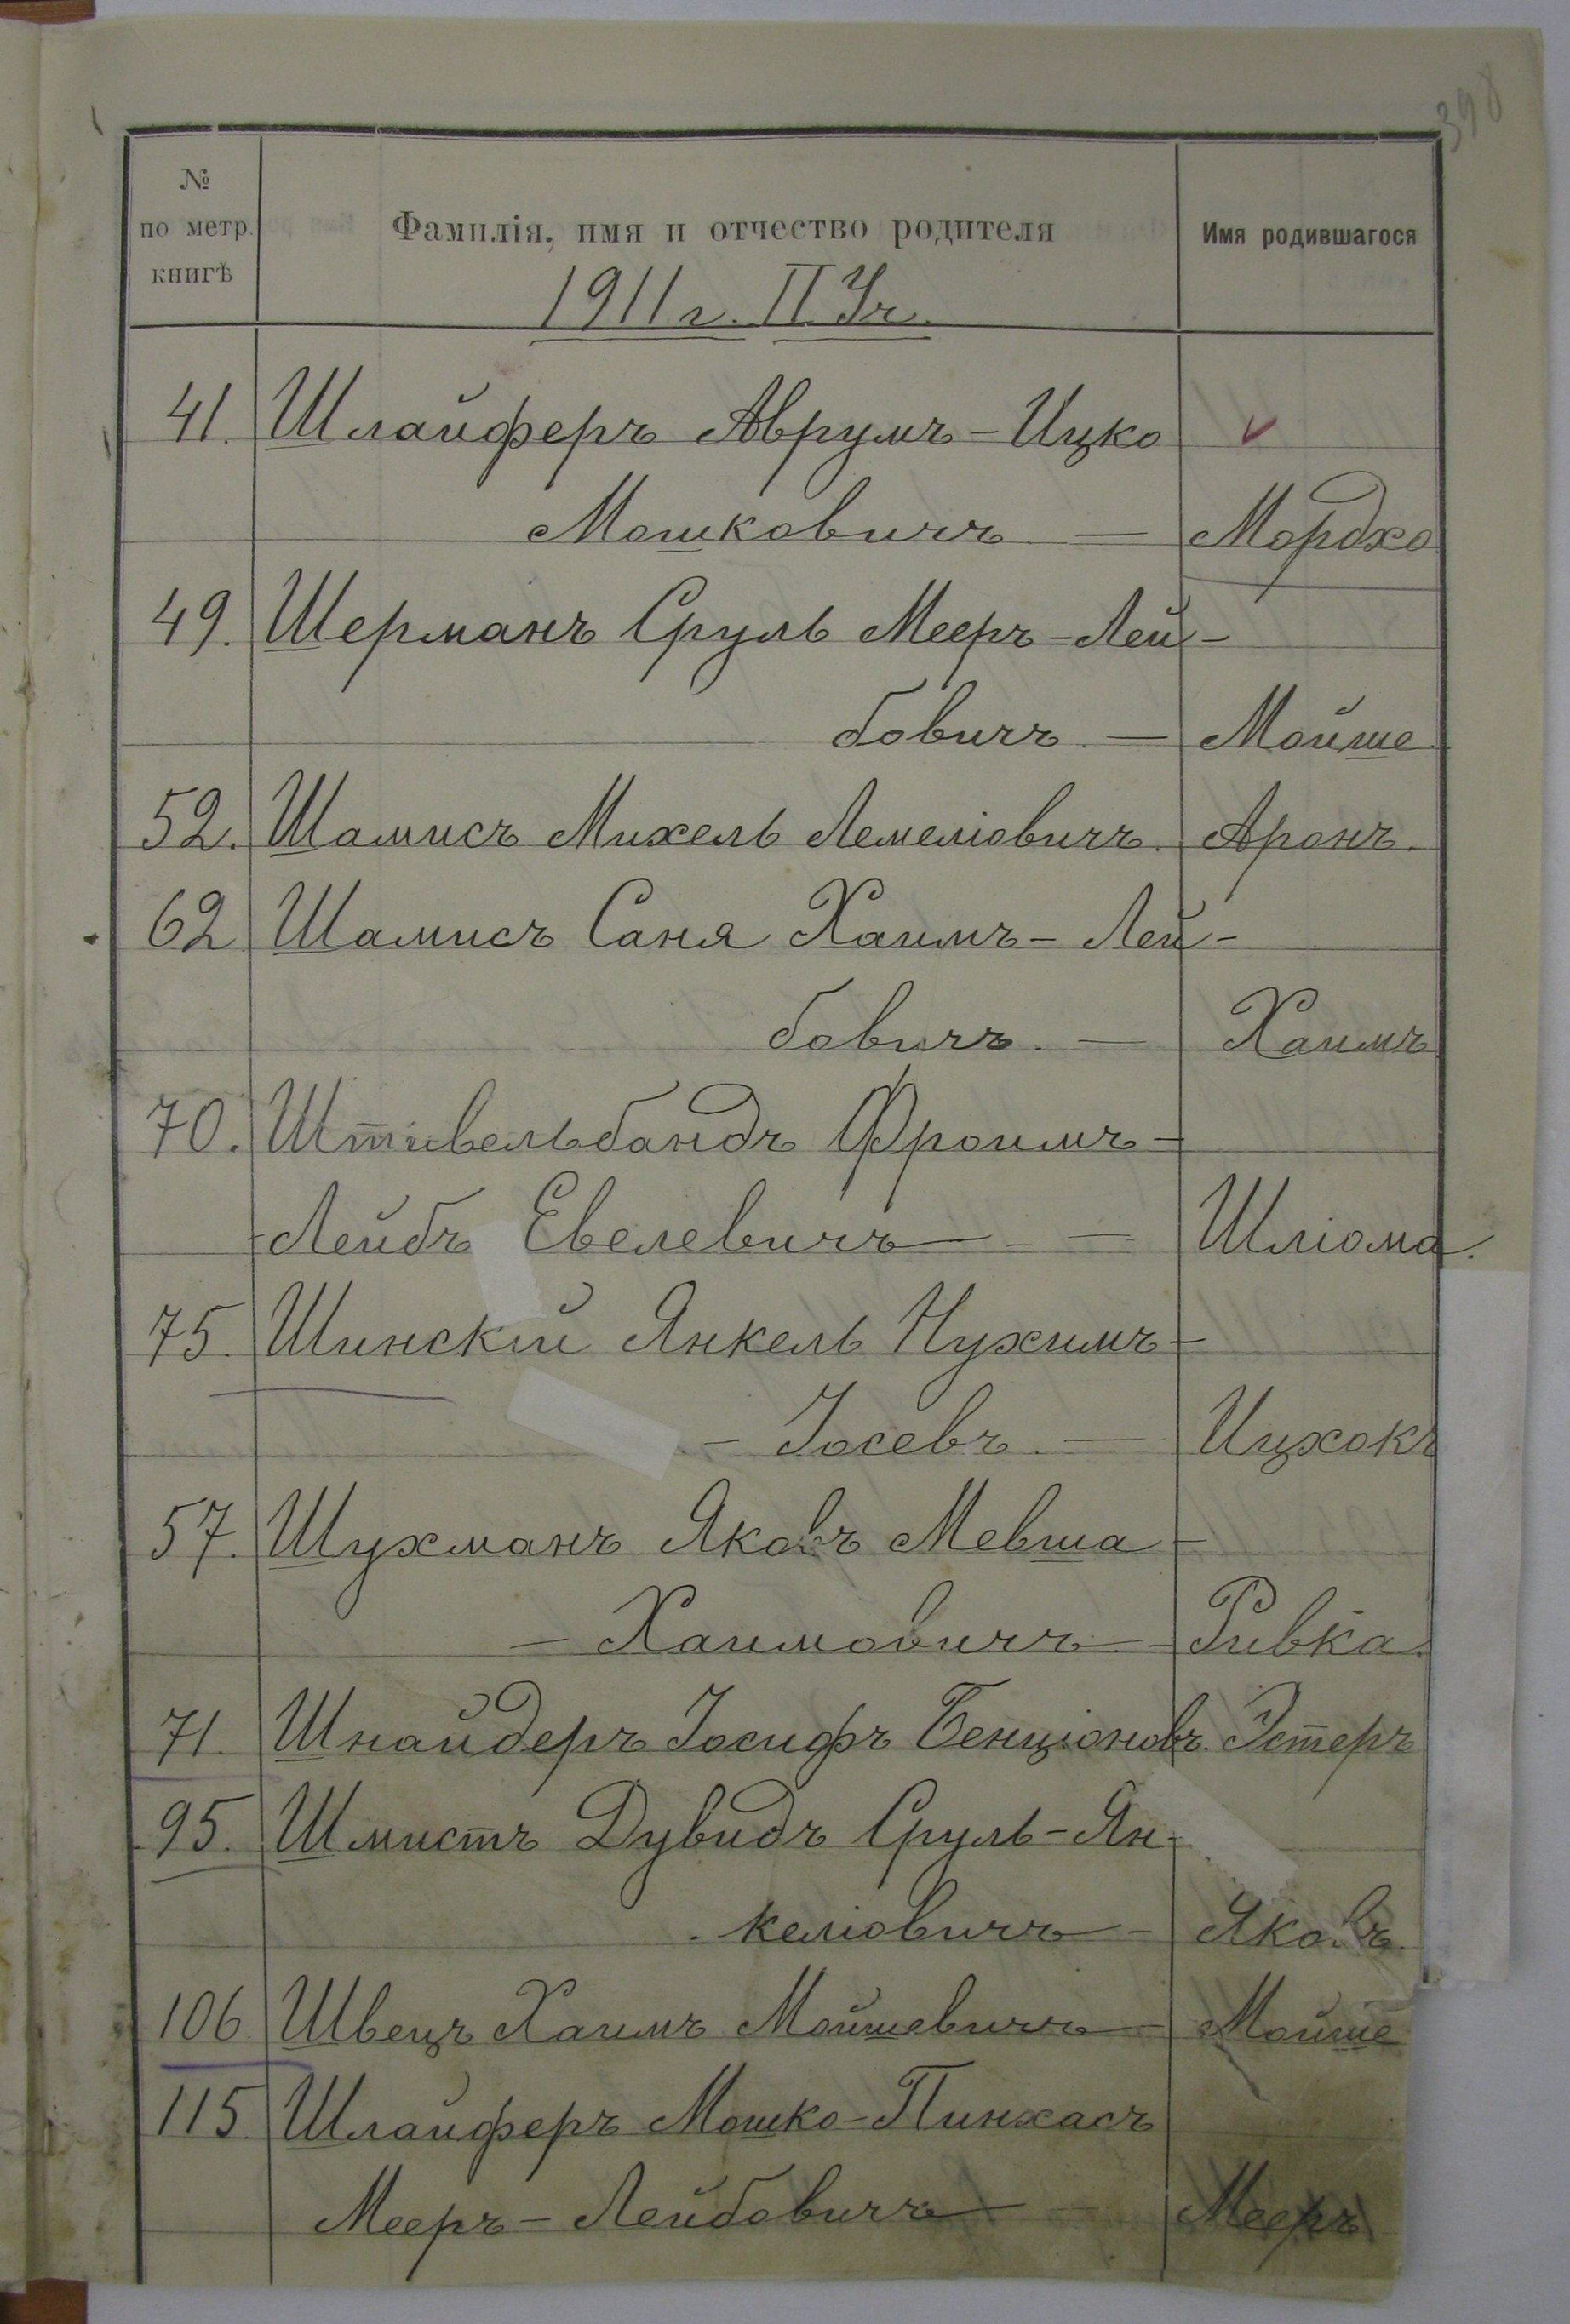 398
№ по метр. книгѣ
Фамилія, имя и отчество родителя
Имя родившагося
1911 г. II Уч.
41. Шлайферъ Аврумъ-Ицко
Мошковичъ — Мордхо
49. Шерманъ Сруль Мееръ-Лей-
бовичъ — Мойше
52. Шамисъ Михель Лемеліовичъ. Аронъ.
62 Шамисъ Саня Хаимъ-Лей-
бовичъ. — Хаимъ
70. Штивельбандъ Фроимъ-
-Лейбъ Евелевичъ — Шліома.
75. Шинскій Янкель Нухимъ-
- Іосевъ. — Ицхокъ
57. Шухманъ Яковъ Мевша-
- Хаимовичъ - Ривка.
71. Шнайдеръ Іосифъ Бенціоновъ. Эстеръ
95. Шмистъ Дувидъ Сруль-Ян-
келіовичъ - Яковъ.
106 Швецъ Хаимъ Мойшевичъ - Мойше
115 Шлайферъ Мошко-Пинхасъ
Мееръ-Лейбовичъ — Мееръ